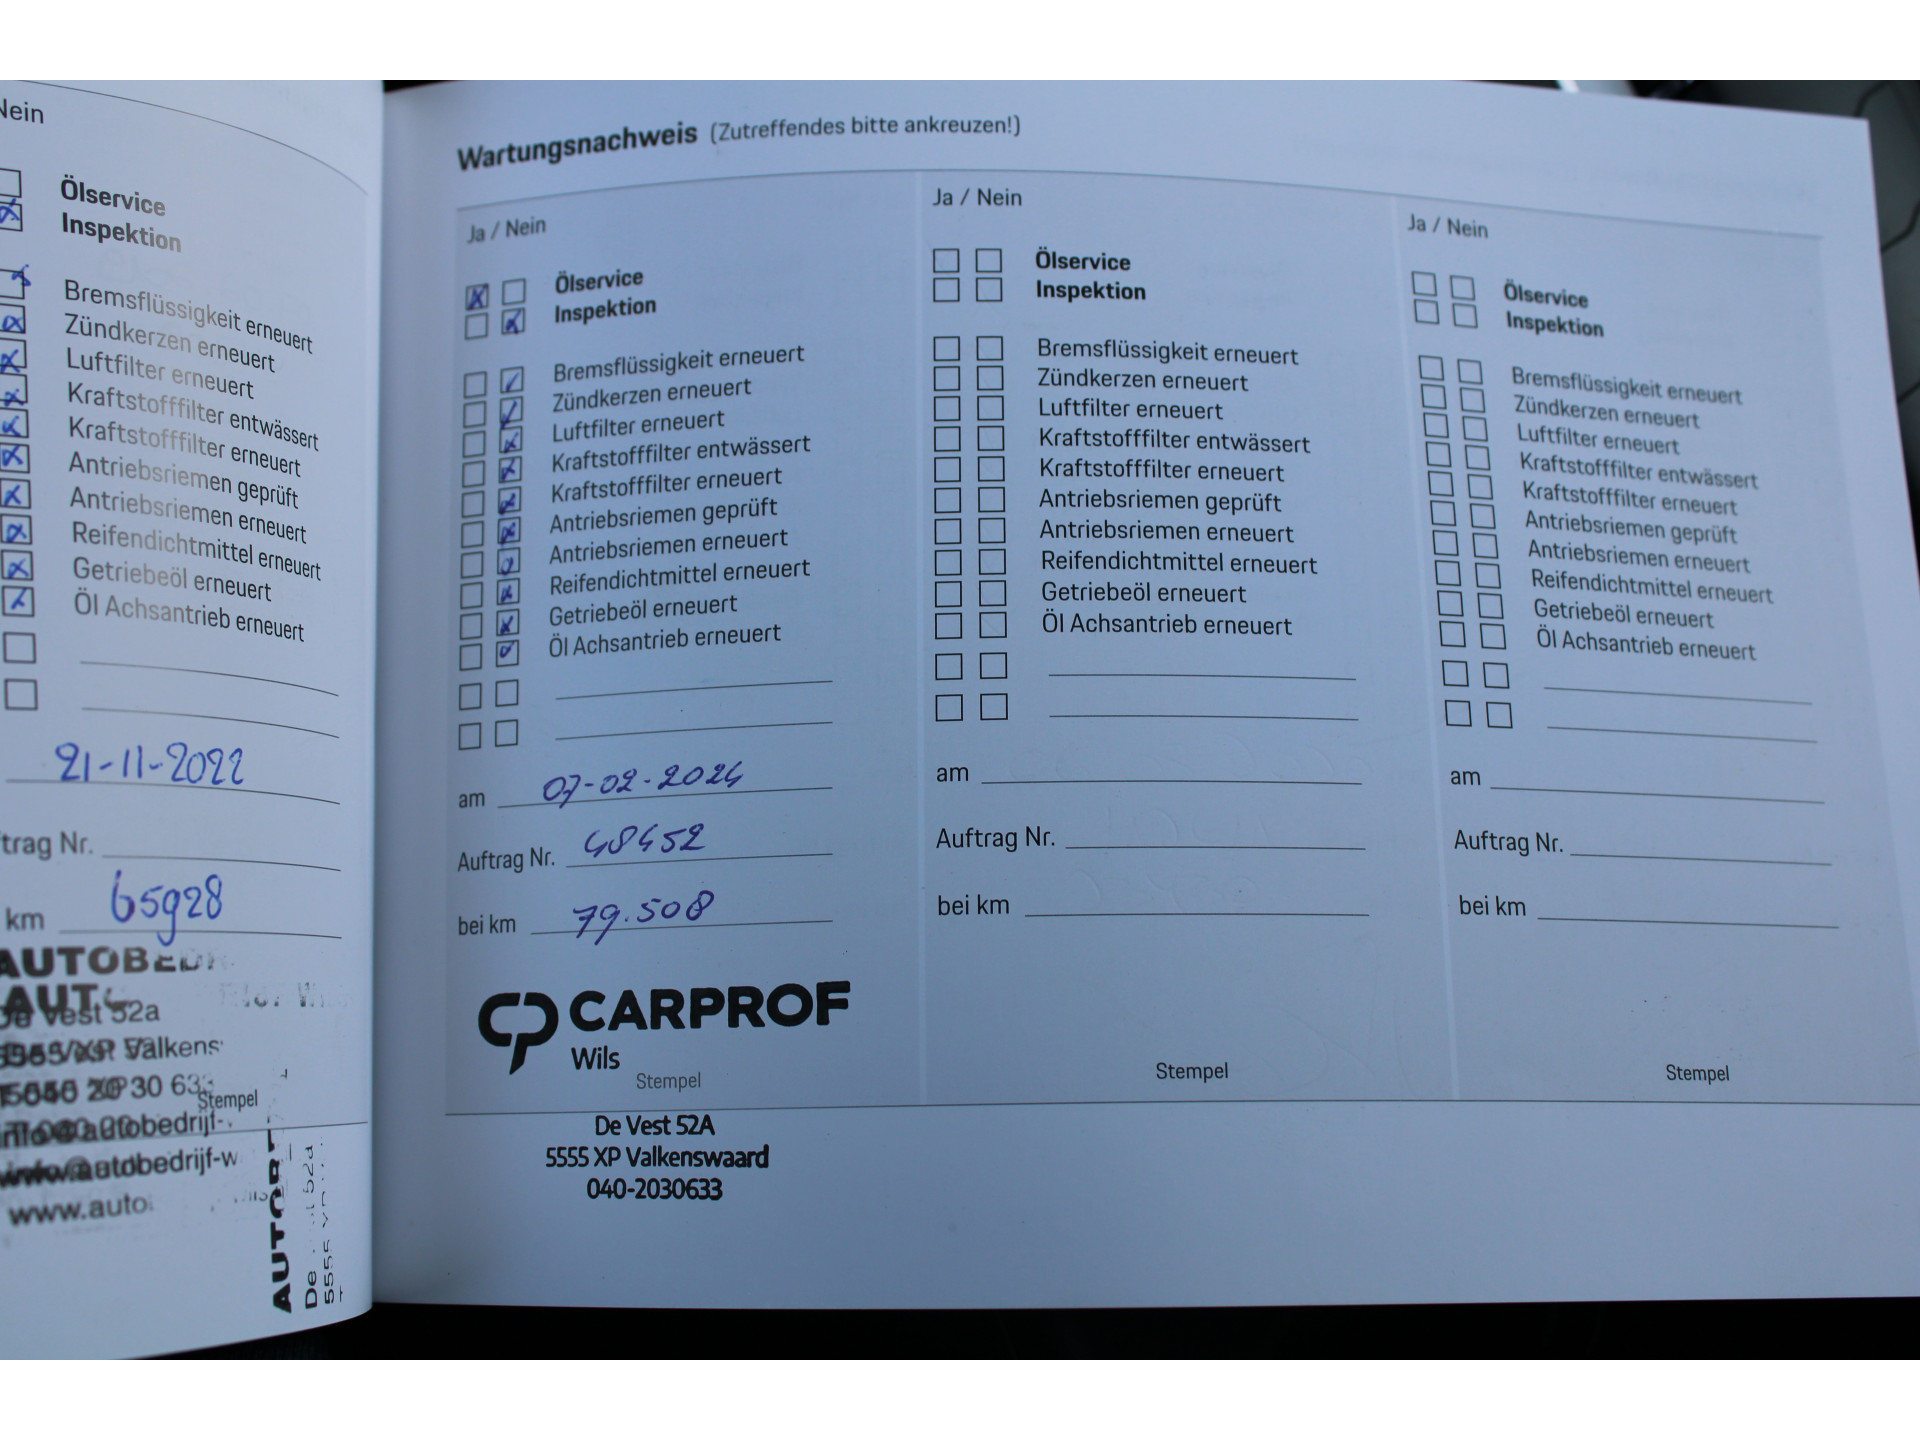 Nein
Ölservice
Inspektion
Bremsflüssigkeit erneuert
Zündkerzen erneuert
Luftfilter erneuert
Kraftstofffilter entwässert
Kraftstofffilter erneuert
Antriebsriemen geprüft
Antriebsriemen erneuert
Reifendichtmittel erneuert
Getriebeöl erneuert
Öl Achsantrieb erneuert
21-11-2022
trag Nr.
km 65928
AUTOBED
AUT
De Vest 52a
Valkens
Stempel
autobedrijf-
info@autobedrijf-w
www.auto
De 52a
5555
Wartungsnachweis (Zutreffendes bitte ankreuzen!)
Ja / Nein
Ölservice
Inspektion
Bremsflüssigkeit erneuert
Zündkerzen erneuert
Luftfilter erneuert
Kraftstofffilter entwässert
Kraftstofffilter erneuert
Antriebsriemen geprüft
Antriebsriemen erneuert
Reifendichtmittel erneuert
Getriebeöl erneuert
Öl Achsantrieb erneuert
am 07-02-2024
Auftrag Nr. 48452
bei km 79.508
CP CARPROF
Wils
Stempel
De Vest 52A
5555 XP Valkenswaard
040-2030633
Ja / Nein
Ölservice
Inspektion
Bremsflüssigkeit erneuert
Zündkerzen erneuert
Luftfilter erneuert
Kraftstofffilter entwässert
Kraftstofffilter erneuert
Antriebsriemen geprüft
Antriebsriemen erneuert
Reifendichtmittel erneuert
Getriebeöl erneuert
Öl Achsantrieb erneuert
am
Auftrag Nr.
bei km
Stempel
Ja / Nein
Ölservice
Inspektion
Bremsflüssigkeit erneuert
Zündkerzen erneuert
Luftfilter erneuert
Kraftstofffilter entwässert
Kraftstofffilter erneuert
Antriebsriemen geprüft
Antriebsriemen erneuert
Reifendichtmittel erneuert
Getriebeöl erneuert
Öl Achsantrieb erneuert
am
Auftrag Nr.
bei km
Stempel